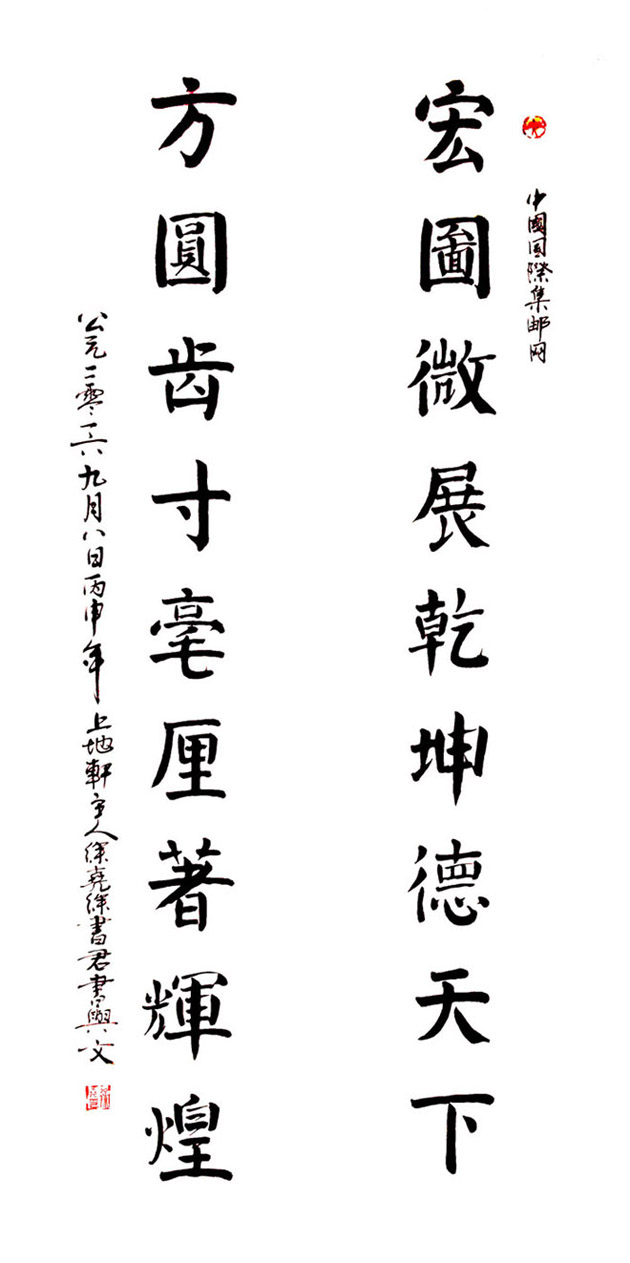 中國国際集邮网
宏圖微展乾坤德天下
方圓齿寸毫厘著輝煌
公元二零一六九月八日丙申年上地軒主人徐堯徐書君書與文